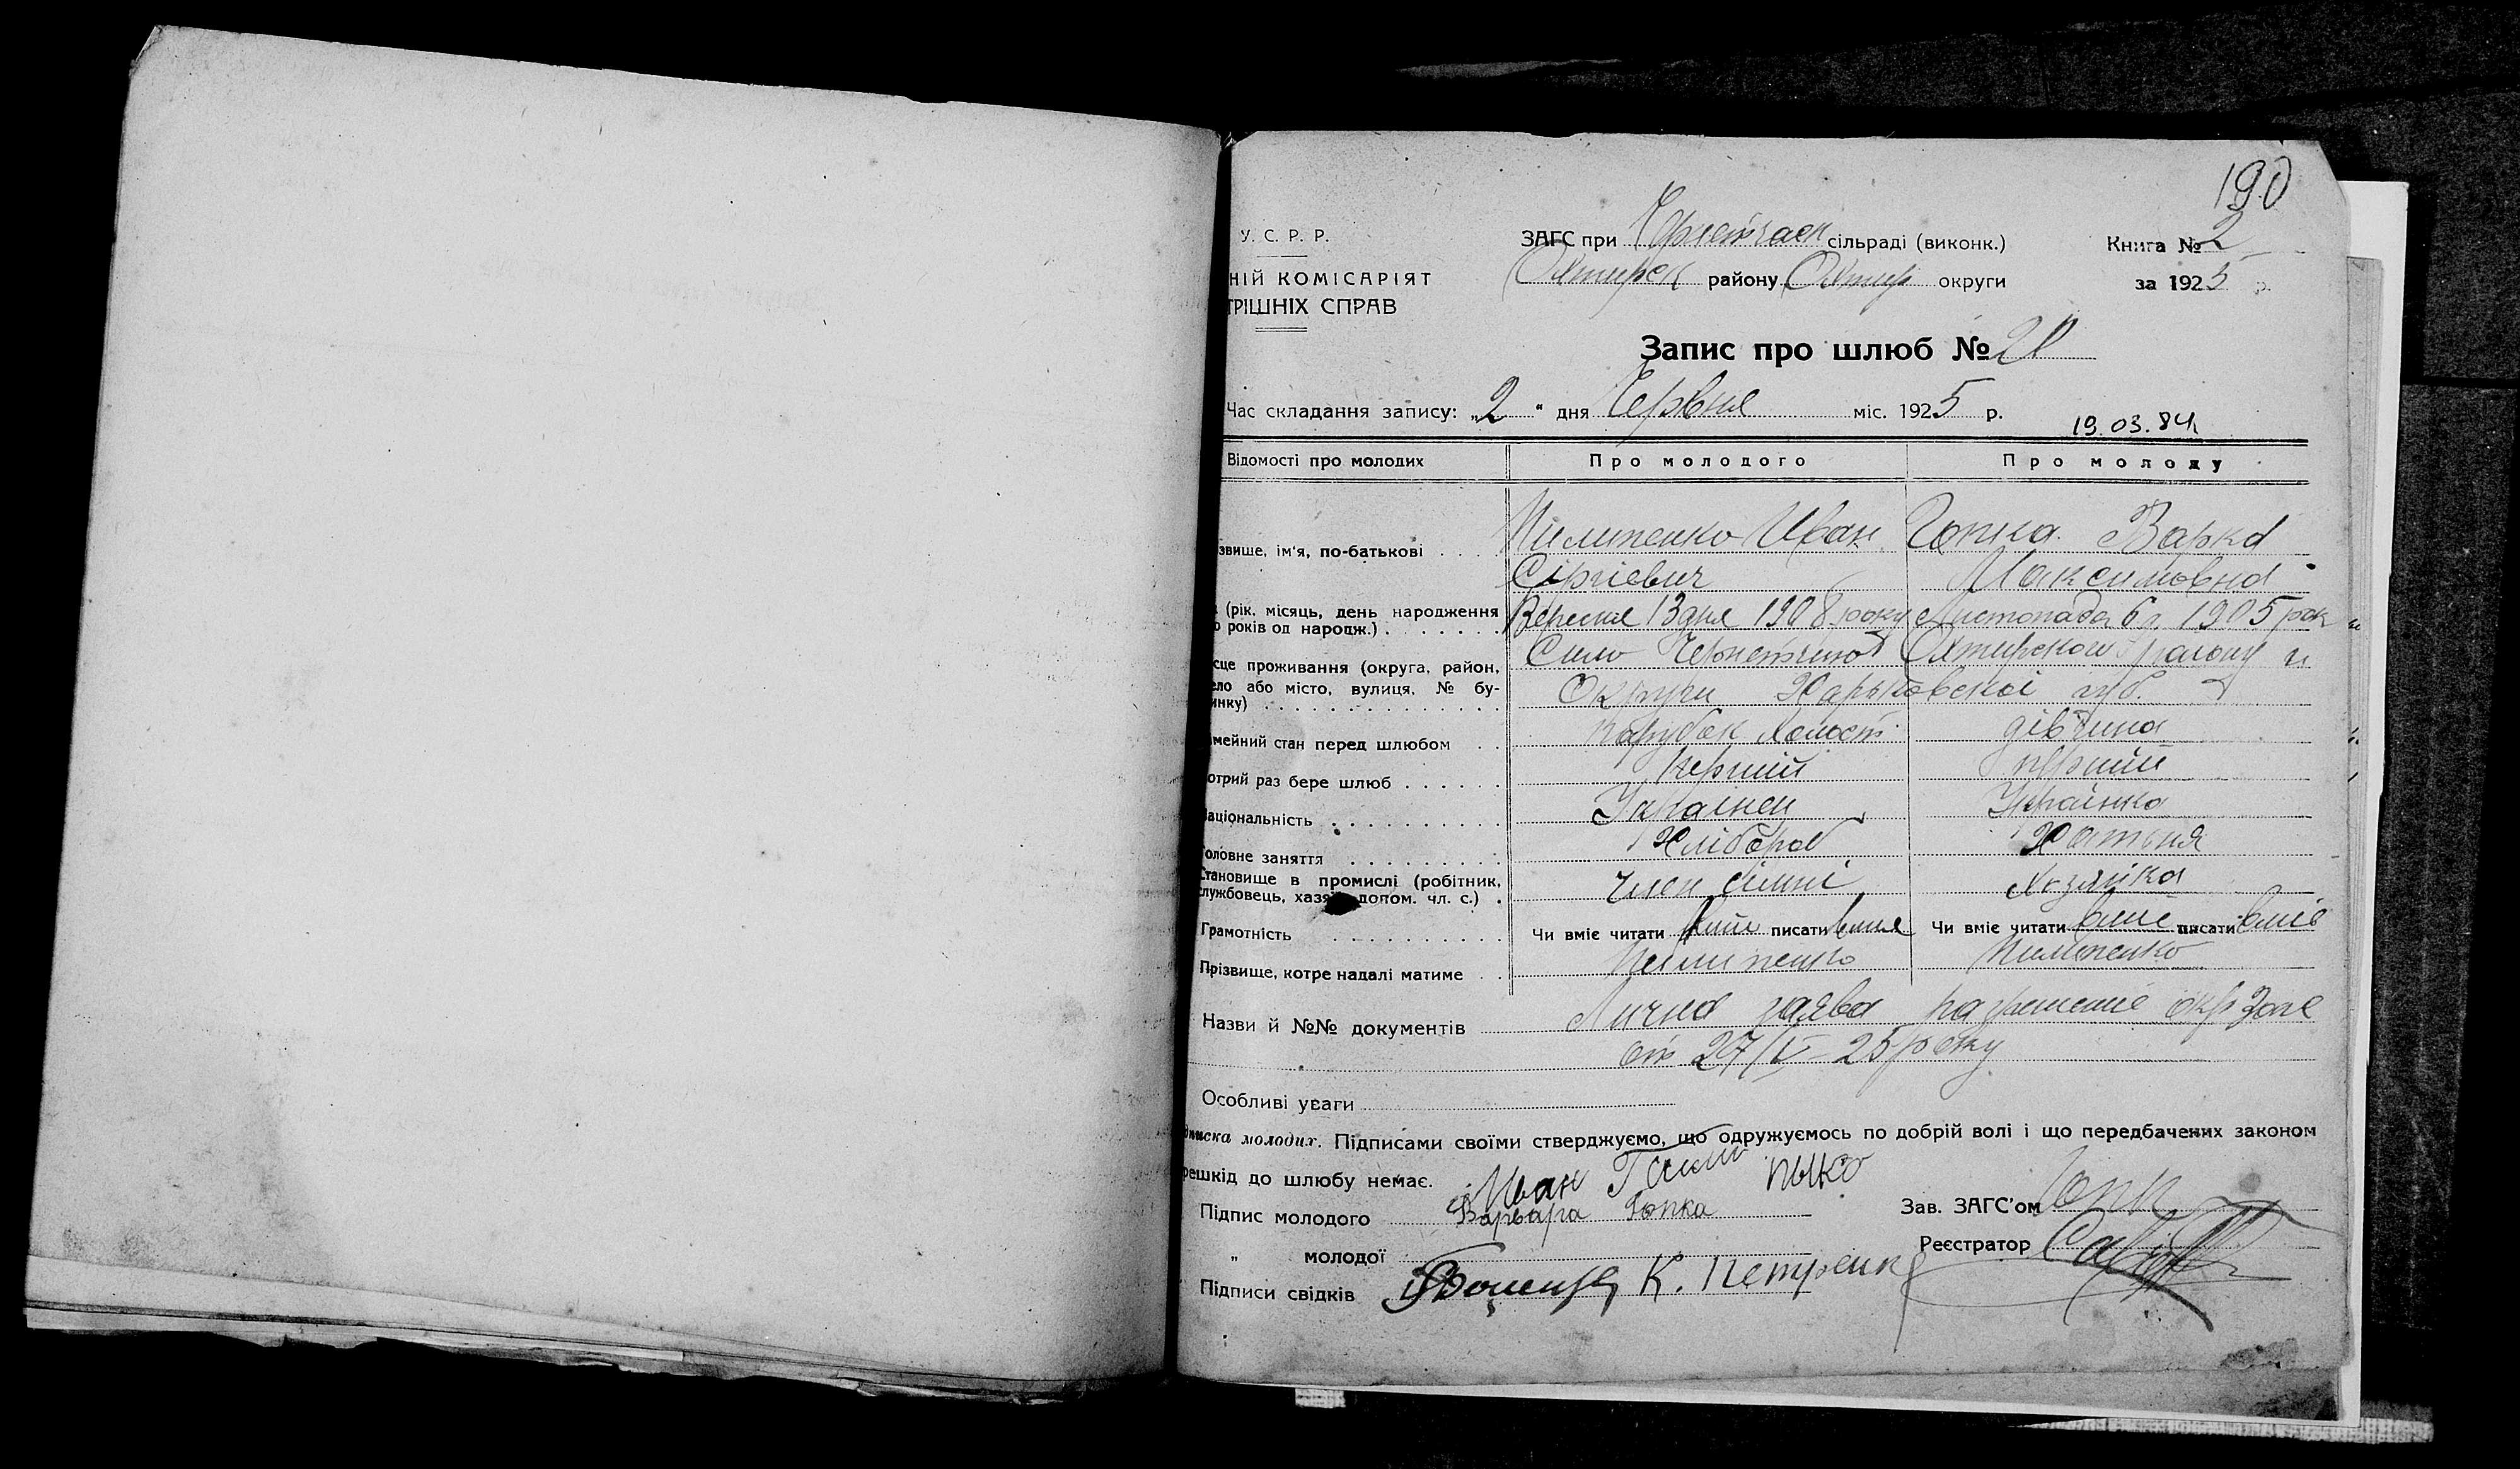 190
У. С. Р. Р.
ЗАГС при сільраді (виконк.)
Книга № 2
НІЙ КОМІСАРІЯТ
Охтирск району Охтир округи
за 1925 р.
ТРІШНІХ СПРАВ
Запис про шлюб №
Час складання запису: „2“ дня Червня міс. 1925 р.
19.03.84
Відомості про молодих
Про молодого
Про молоду
звище, ім'я, по-батькові
Пилипенко Иван Гопка Варка
Сіргіевич Максимовна
(рік. місяць, день народження
років од народж.)
Вересня 13 дня 1908 року Листопада 6 д. 1905 рок
сце проживання (округа, район,
ело або місто, вулиця, № бу-
инку)
Село Охтирского району и
Округи Харьковскоі губ.
мейний стан перед шлюбом
Парубок холост дівчина
отрий раз бере шлюб
перший перший
аціональність
Українец Українка
оловне заняття
Хлібороб Хатьня
Становище в промислі (робітник,
службовець, хазя допом. чл. с.)
член сімні Хозяйка
Грамотність
Чи вміє читати писати Чи вміє читати вміє писати вміє
Прізвище, котре надалі матиме
Пилипенко Пилипенко
Назви й №№ документів
Лична заява разрешение окр Загс
от 27/V-25 року
Особливі уваги
писка молодих. Підписами своїми стверджуємо, що одружуємось по добрій волі і що передбачених законом
решкід до шлюбу немає.
Иван
Підпис молодого
Варвара Гопка
Зав. ЗАГС'ом
„ молодої
Реєстратор
Підписи свідків
К. Петренко